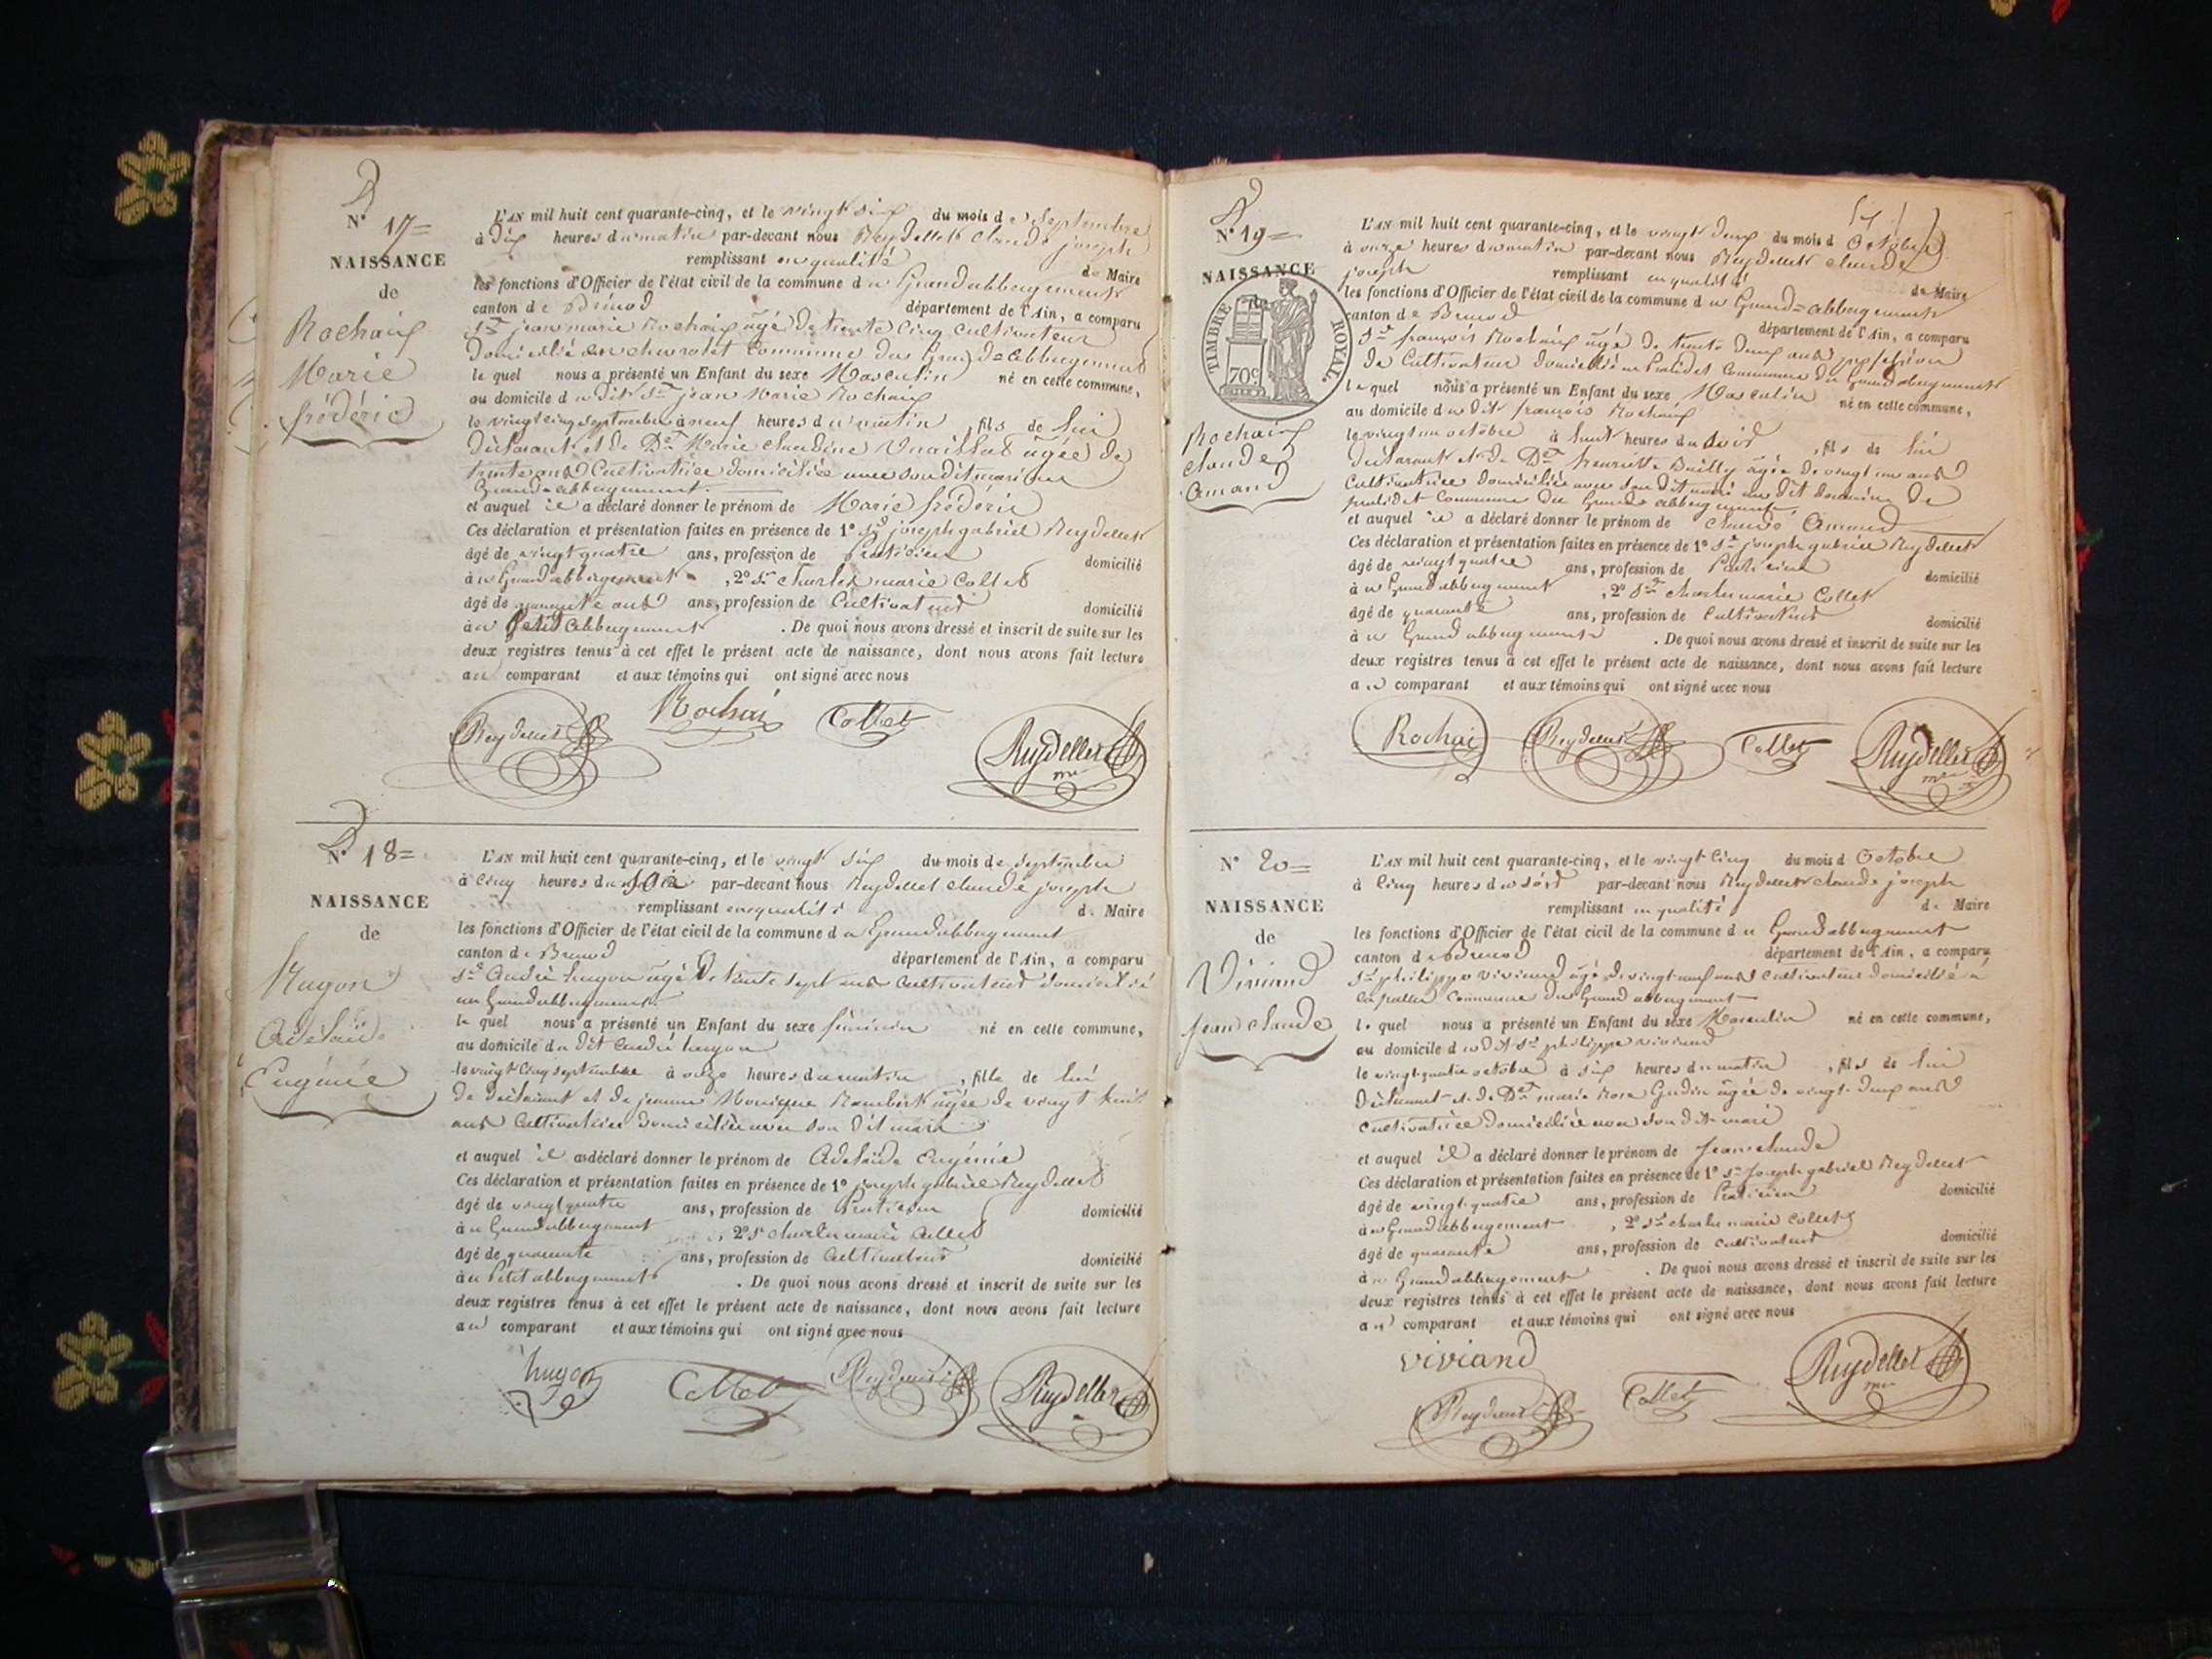 N° 17=
NAISSANCE
de
Rochaix
Marie
frédéric
L'AN mil huit cent quarante-cinq, et le vingt six du mois de Septembre
à dix heures du matin par-devant nous Reydellet Claude joseph
remplissant en qualité de Maire
les fonctions d'Officier de l'état civil de la commune du Grandabbergement
canton de Brénod département de l'Ain, a comparu
Sr jean marie Rochaix agé de trente cinq cultivateur
domicilié commune du Grand=abbergement
lequel nous a présenté un Enfant du sexe Masculin né en cette commune,
au domicile du dit Sr jean Marie Rochaix
le vingt cinq septembre à neuf heures du matin, fils de lui
déclarant et de De Marie Claudine âgée de
trente ans Cultivatrice domiciliée avec son dit mari au
Grand=abbergement
et auquel il a déclaré donner le prénom de Marie frédéric
Ces déclaration et présentation faites en présence de 1° Sr joseph gabriel Reydellet
âgé de vingt quatre ans, profession de Praticien domicilié
à u Grandabbergement, 2° Sr Charles marie Collet
âgé de quarante ans ans, profession de Cultivateur domicilié
à u Petit abbergement. De quoi nous avons dressé et inscrit de suite sur les
deux registres tenus à cet effet le présent acte de naissance, dont nous avons fait lecture
au comparant et aux témoins qui ont signé avec nous
Reydellet Rochaix Collet Reydellet
N° 18=
NAISSANCE
de
Hugon
Adélaïde
Eugénie
L'AN mil huit cent quarante-cinq, et le vingt six du mois de septembre
à cinq heures du soir par-devant nous Reydellet claude joseph
remplissant en qualité de Maire
les fonctions d'Officier de l'état civil de la commune du Grandabbergement
canton de Brenod département de l'Ain, a comparu
Sr André hugon agé de trente sept ans cultivateur domicilié
au Grandabbergement
lequel nous a présenté un Enfant du sexe féminin né en cette commune,
au domicile du dit André hugon
le vingt cinq septembre à onze heures du matin, fille de lui
de déclarant et de jeanne Monique Rambert âgée de vingt huit
ans Cultivatrice domiciliée avec son dit mari
et auquel il a déclaré donner le prénom de Adelaïde Eugénie
Ces déclaration et présentation faites en présence de 1° joseph gabriel Reydellet
âgé de vingt quatre ans, profession de Praticien domicilié
à u Grandabbergement, 2° Sr charles marie Collet
âgé de quarante ans, profession de Cultivateur domicilié
à u Petit abbergement. De quoi nous avons dressé et inscrit de suite sur les
deux registres tenus à cet effet le présent acte de naissance, dont nous avons fait lecture
au comparant et aux témoins qui ont signé avec nous
hugon Collet Reydellet Reydellet
N° 19=
NAISSANCE
TIMBRE ROYAL.
70c
Rochaix
claude
Amand
L'AN mil huit cent quarante-cinq, et le vingt deux du mois d Octobre
à onze heures du matin par-devant nous Reydellet claude
joseph remplissant en qualité de Maire
les fonctions d'Officier de l'état civil de la commune du Grand=abbergement
canton de Brenod département de l'Ain, a comparu
Sr françois Rochaix agé de trente deux ans profession
de Cultivateur domicilié commune du Grandabbergement
lequel nous a présenté un Enfant du sexe Masculin né en cette commune,
au domicile du dit françois Rochaix
le vingt un octobre à huit heures du soir, fils de lui
déclarant et de De henriette Bailly âgée de vingt ans
cultivatrice domiciliée avec son dit mari au dit domaine de
commune du Grand abbergement
et auquel il a déclaré donner le prénom de Claude Amand
Ces déclaration et présentation faites en présence de 1° Sr joseph gabriel Reydellet
âgé de vingt quatre ans, profession de Praticien domicilié
à u Grand abbergement, 2° Sr Charles marie Collet
âgé de quarante ans, profession de Cultivateur domicilié
à u Grand abbergement. De quoi nous avons dressé et inscrit de suite sur les
deux registres tenus à cet effet le présent acte de naissance, dont nous avons fait lecture
au comparant et aux témoins qui ont signé avec nous
Rochai Reydellet Collet Reydellet
N° 20=
NAISSANCE
de
Viviand
jean claude
L'AN mil huit cent quarante-cinq, et le vingt cinq du mois d Octobre
à cinq heures du soir par-devant nous Reydellet claude joseph
remplissant en qualité de Maire
les fonctions d'Officier de l'état civil de la commune du Grandabbergement
canton de Brenod département de l'Ain, a comparu
Sr philippe viviand agé de vingt neuf ans Cultivateur domicilié à
commune du Grand abbergement
lequel nous a présenté un Enfant du sexe Masculin né en cette commune,
au domicile du dit Sr philippe viviand
le vingt-quatre octobre à six heures du matin, fils de lui
déclarant et de De marie Rose Gudin âgée de vingt-deux ans
cultivatrice domiciliée avec son dit mari
et auquel il a déclaré donner le prénom de Jean claude
Ces déclaration et présentation faites en présence de 1° Sr Joseph gabriel Reydellet
âgé de vingt-quatre ans, profession de Praticien domicilié
à u Grandabbergement, 2° Sr charles marie Collet
âgé de quarante ans, profession de cultivateur domicilié
à u Grandabbergement. De quoi nous avons dressé et inscrit de suite sur les
deux registres tenus à cet effet le présent acte de naissance, dont nous avons fait lecture
au comparant et aux témoins qui ont signé avec nous
viviand Reydellet Collet Reydellet